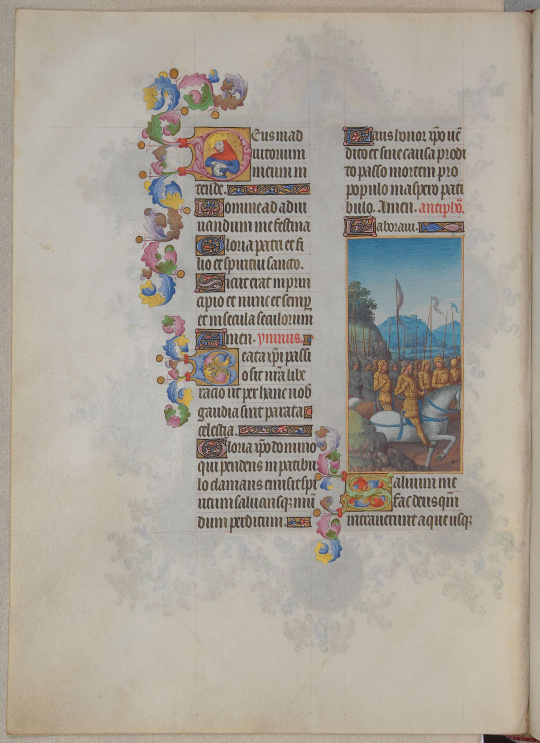 Deus in ad
iutorium
meum in
tende.
Domine ad adiu
uandum me festina
Gloria patri et fi
lio et spiritui sancto.
Sicut erat in prin
cipio et nunc et semp
et in secula seculorum
Amen. ymnus.
Beata xpi passi
o sit nra libe
racio ut per hanc nob
gaudia sint parata
celestia.
Gloria xpo domino
qui pendens in patibu
lo clamans emisit spi
ritum saluans qz mu
dum perditum.
Laus honor xpo ue
dito et sine causa prodi
to passo mortem pro
populo in aspero pati
bulo. Amen. antipho.
Laboraui.
Saluum me
fac deus qm
intrauerunt aque usqz